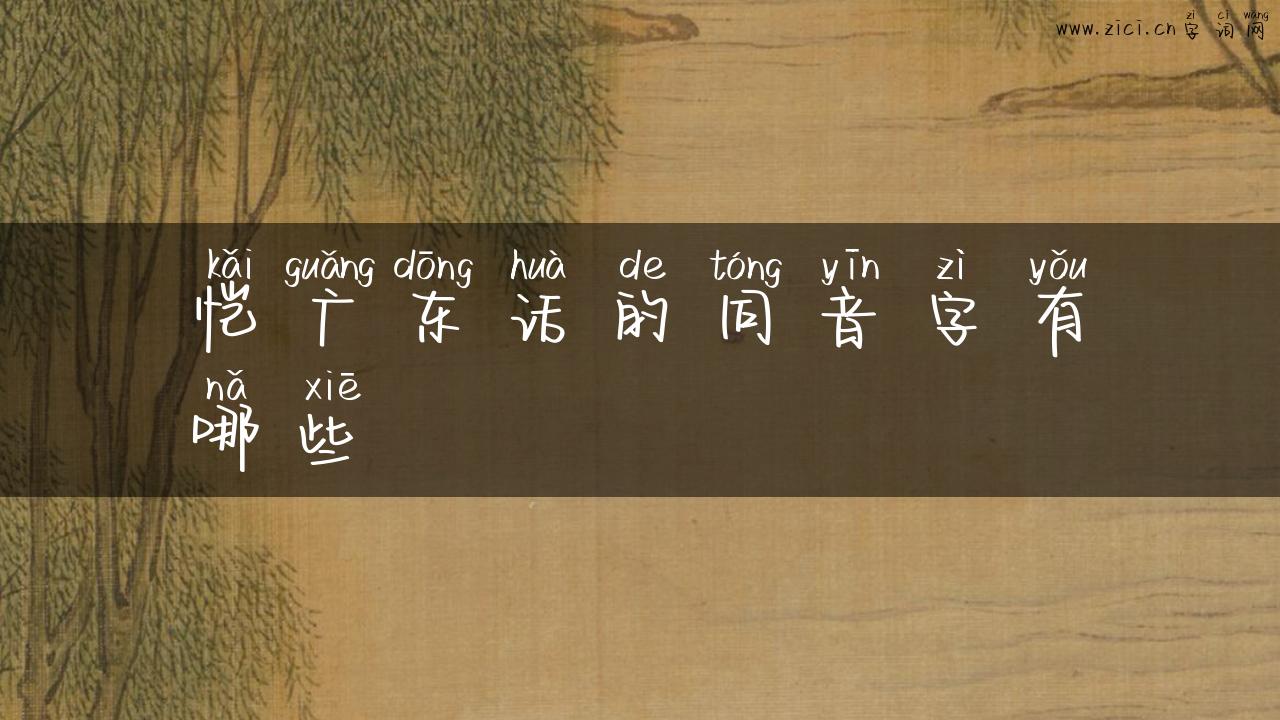 zì cí wǎng
www.zici.cn 字 词 网
kǎi guǎng dōng huà de tóng yīn zì yǒu
恺 广 东 话 的 同 音 字 有
nǎ xiē
哪 些